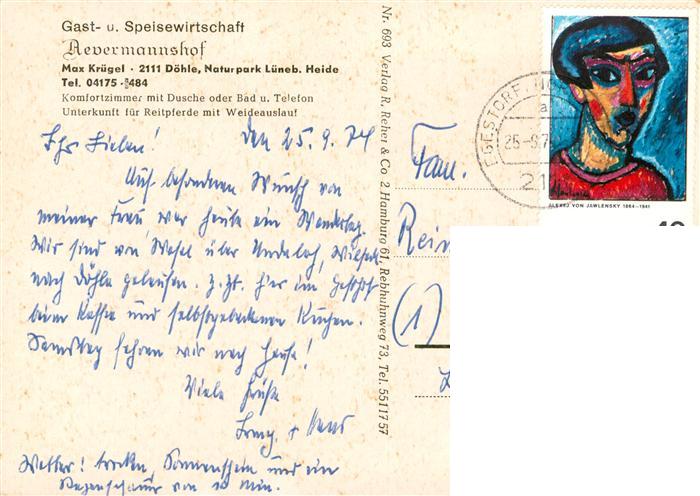 Gast- u. Speisewirtschaft
Aevermannshof
Max Krügel · 2111 Döhle, Naturpark Lüneb. Heide
Tel. 04175 - 484
Komfortzimmer mit Dusche oder Bad u. Telefon
Unterkunft für Reitpferde mit Weideauslauf
Ihr Lieben! den 25. 9. 74
Auf besonderen Wunsch von
meiner Frau war heute ein Wandertag.
Wir sind von Wesel über Undeloh, Wilsede
nach Döhle gelaufen. z. Zt. hier im Gasthof
beim Kaffee und selbstgebackenen Kuchen.
Samstag fahren wir nach Hause!
Viele Grüße
Irmg. + Hans
Wetter! trocken, Sonnenschein und ein
Regenschauer von 10 min.
Nr. 693 Verlag R. Reher & Co 2 Hamburg 61, Rebhuhnweg 73, Tel. 5511757
Fam.
Rein
(1)
EGESTORF, NO
a
25.-9.7
21
ALEXEJ VON JAWLENSKY 1864-1941